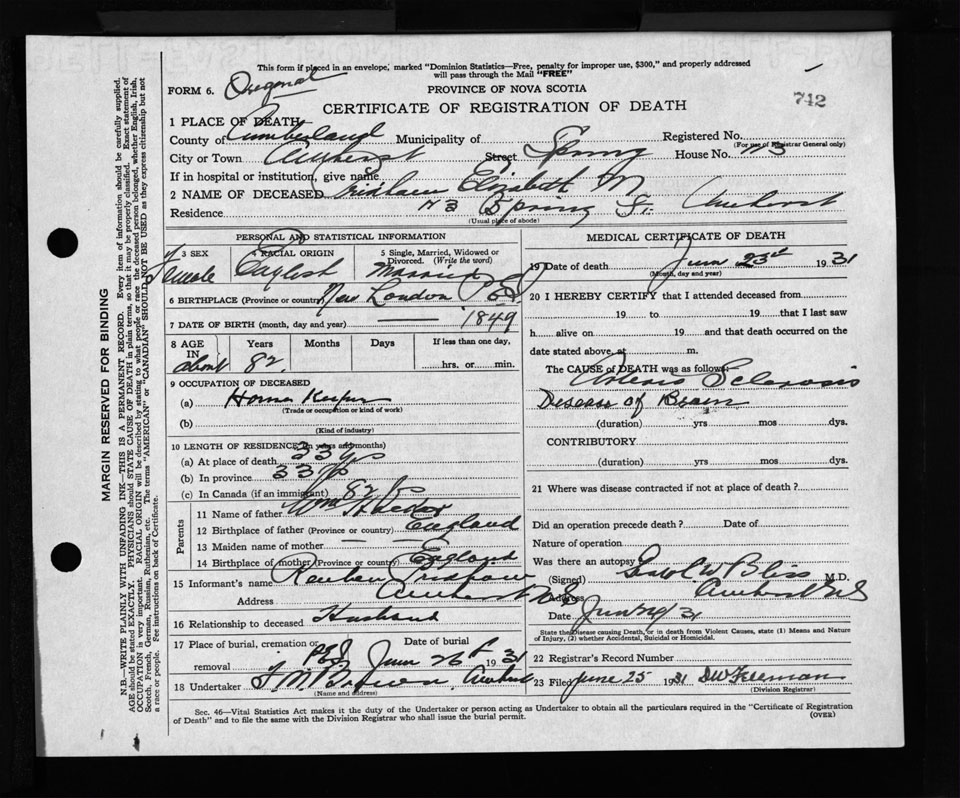 This form if placed in an envelope, marked "Dominion Statistics—Free, penalty for improper use, $300," and properly addressed
will pass through the Mail "FREE"
FORM 6.
PROVINCE OF NOVA SCOTIA
742
CERTIFICATE OF REGISTRATION OF DEATH
1 PLACE OF DEATH
County of Cumberland Municipality of Registered No.
(For use of Registrar General only)
City or Town Amherst Street Spring House No. 113
If in hospital or institution, give name
2 NAME OF DECEASED Elizabeth M
Residence Spring St. Amherst
(Usual place of abode)
PERSONAL AND STATISTICAL INFORMATION
3 SEX Female
4 RACIAL ORIGIN English
5 Single, Married, Widowed or Divorced. (Write the word) Married
6 BIRTHPLACE (Province or country) New London P.E.I
7 DATE OF BIRTH (month, day and year) — 1849
8 AGE IN Years Months Days If less than one day,
about 82 hrs. or min.
9 OCCUPATION OF DECEASED
(a) Home Keeper
(Trade or occupation or kind of work)
(b)
(Kind of industry)
10 LENGTH OF RESIDENCE (in years and months)
(a) At place of death 33 yrs
(b) In province 33 yrs
(c) In Canada (if an immigrant) 82
Parents
11 Name of father Wm
12 Birthplace of father (Province or country) England
13 Maiden name of mother — —
14 Birthplace of mother (Province or country) England
15 Informant's name Reuben
Address Amherst N.S
16 Relationship to deceased Husband
17 Place of burial, cremation or removal P.E.I Date of burial June 26 1931
18 Undertaker Brown Amherst
(Name and address)
MEDICAL CERTIFICATE OF DEATH
19 Date of death June 23rd 1931
(Month, day and year)
20 I HEREBY CERTIFY that I attended deceased from
19 to 19 that I last saw
h alive on 19 and that death occurred on
date stated above, at m.
The CAUSE of DEATH was as follows:
Arterio Sclerosis
Disease of Brain
(duration) yrs mos dys.
CONTRIBUTORY
(duration) yrs mos dys.
21 Where was disease contracted if not at place of death?
Did an operation precede death? Date of
Nature of operation
Was there an autopsy
(Signed) Bliss M.D.
Address Amherst N.S
Date June 31
State the Disease causing Death, or in death from Violent Causes, state (1) Means and Nature
of Injury, (2) whether Accidental, Suicidal or Homicidal.
22 Registrar's Record Number
23 Filed June 25 1931 Freeman
(Division Registrar)
Sec. 46—Vital Statistics Act makes it the duty of the Undertaker or person acting as Undertaker to obtain all the particulars required in the "Certificate of Registration
of Death" and to file the same with the Division Registrar who shall issue the burial permit.
(OVER)
MARGIN RESERVED FOR BINDING
N.B.—WRITE PLAINLY WITH UNFADING INK—THIS IS A PERMANENT RECORD. Every item of information should be carefully supplied.
AGE should be stated EXACTLY. PHYSICIANS should STATE CAUSE OF DEATH in plain terms, so that it may be properly classified. Exact statement of
OCCUPATION is very important. RACIAL ORIGIN will be described by stating to what people or race the deceased person belonged, whether English, Irish,
Scotch, French, German, Russian, Ruthenian, etc. The terms "AMERICAN" or "CANADIAN" SHOULD NOT BE USED as they express citizenship but not
a race or people. See instructions on back of Certificate.